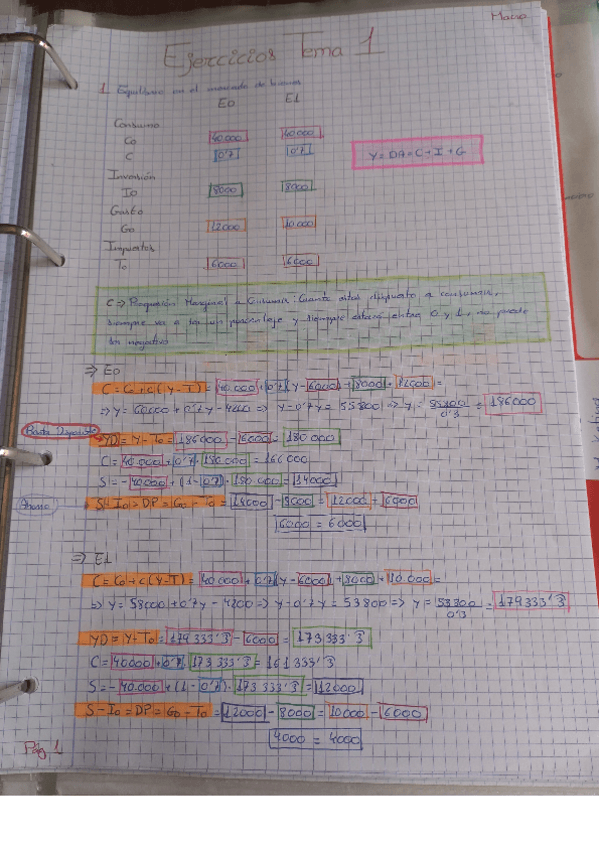 Macro
Ejercicios Tema 1
1. Equilibrio en el mercado de bienes
E0 E1
Consumo
C0 40.000 40.000
C 0'7 0'7
Y = DA = C + I + G
Inversión
I0 8000 8000
Gasto
G0 12000 10.000
Impuestos
T0 6000 6000
C => Propensión Marginal a Consumir: Cuanto estas dispuesto a consumir,
siempre va a ser un porcentaje y siempre estará entre 0 y 1, no puede
ser negativo
=> E0
C = C0 + c(Y-T) = 40.000 + 0'7(Y - 6000) + 8000 + 12000 =
=> Y = 60000 + 0'7Y - 4200 => Y - 0'7Y = 55800 => Y = 55800/0'3 = 186000
Renta Disponible
YD = Y - T0 = 186000 - 6000 = 180000
C = 40.000 + 0'7 · 180000 = 166000
S = -40.000 + (1 - 0'7) · 180.000 = 14000
Ahorro
S - I0 = DP = G0 - T0 = 14000 - 8000 = 12000 - 6000
6000 = 6000
=> E1
C = C0 + c(Y-T) = 40000 + 0'7(Y - 6000) + 8000 + 10.000 =
=> Y = 58000 + 0'7Y - 4200 => Y - 0'7Y = 53800 => Y = 53800/0'3 = 179333'3
YD = Y - T0 = 179333'3 - 6000 = 173333'3
C = 40000 + 0'7 · 173333'3 = 161333'3
S = -40.000 + (1 - 0'7) · 173333'3 = 12000
S - I0 = DP = G0 - T0 = 12000 - 8000 = 10000 - 6000
4000 = 4000
Pág 1